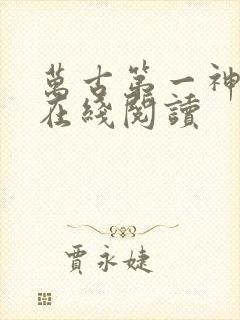 萬古第一神
在綫閱讀
賈永婕